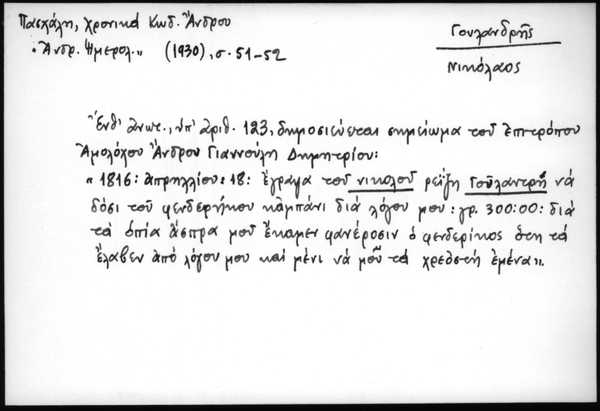 Πασχάλη, χρονικά Κωδ. Ἄνδρου
Γουλανδρῆς
"Ἀνδρ. Ἡμερολ." (1930), σ. 51-52
Νικόλαος
Ἔνθ' ἀνωτ., ὑπ' ἀριθ. 123, δημοσιεύεται σημείωμα τοῦ ἐπιτρόπου
Ἀμολόχου Ἄνδρου Γιαννούλη Δημητρίου:
"1816: ἀπρηλλίου: 18: ἔγραψα τοῦ νικολοῦ ρεΐζη Γοῦλαντρῆ νά
δόσι τοῦ φενδερήκου καμπάνι διά λόγου μου: γρ. 300:00: διά
τά ὁπία ἄσπρα μοῦ ἔκαμεν φανέροσιν ὁ φενδερίκος ὅτη τά
ἔλαβεν ἀπό λόγου μου καί μένι νά μοῦ τά χρεοστῆ ἐμένα".